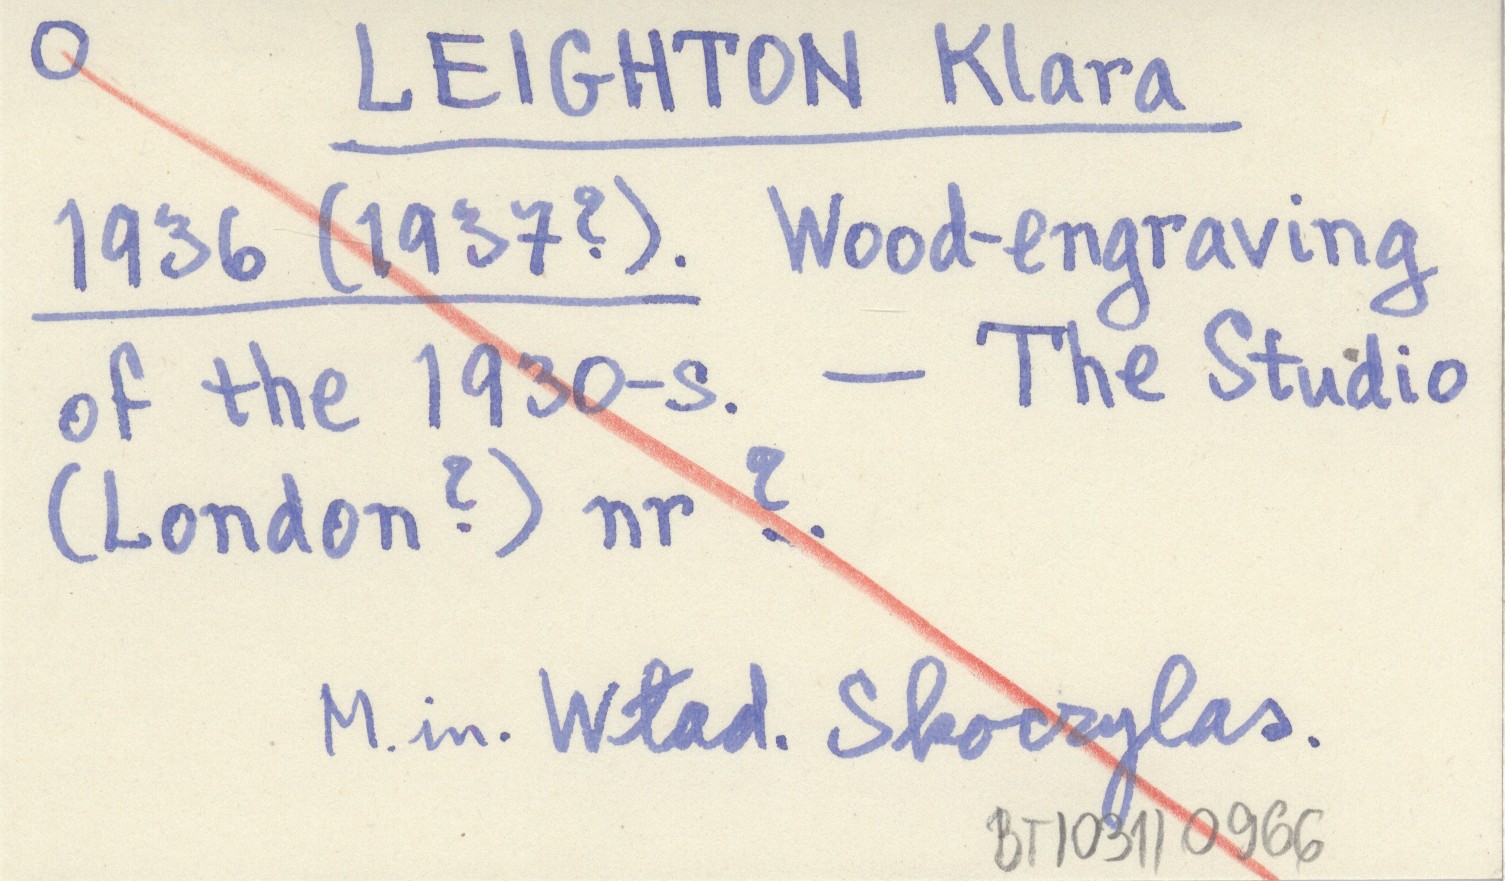 O LEIGHTON Klara
1936 (1937?). Wood-engraving
of the 1930-s. — The Studio
(London?) nr ?.
M.in. Wład. Skoczylas.
BT103110966